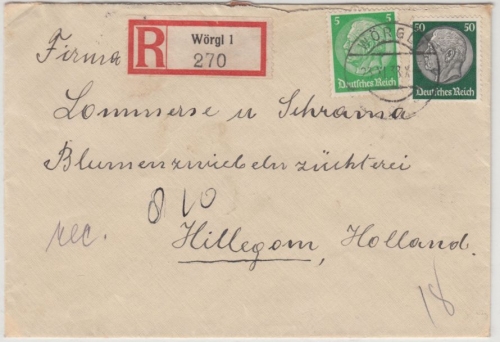 Firma
R
Wörgl 1
270
5 5
Deutsches Reich
WÖRGL
50 50
Deutsches Reich
Lommerse u Schrama
Blumenzwiebelnzüchterei
810
rec.
Hillegom, Holland.
18